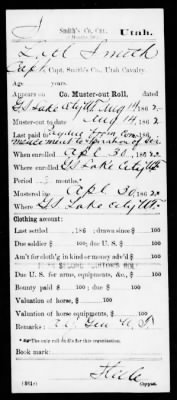 S
Smith's Co., Cav.
Utah.
Lot Smith
Capt., Capt. Smith's Co., Utah Cavalry.
Age years.
Appears on
Co. Muster-out Roll, dated
G S Lake City UT Aug 14, 1862.
Muster-out to date Aug 14, 1862.
Last paid to
When enrolled Apl 30, 1862.
Where G S Lake City UT
Period 3 months.*
Mustered in Apl 30, 1862
Where G S Lake City UT
Clothing account:
Last settled , 186 ; drawn since $ 100
Due soldier $ 100; due U. S. $ 100
Am't for cloth'g in kind or money adv'd $ 100
Due U. S. for arms, equipments, &c., $ 100
Bounty paid $ 100; due $ 100
Valuation of horse, $ 100
Valuation of horse equipments, $ 100
Remarks:
*The only roll on file for this organization.
Book mark:
(361c)
Copyist.